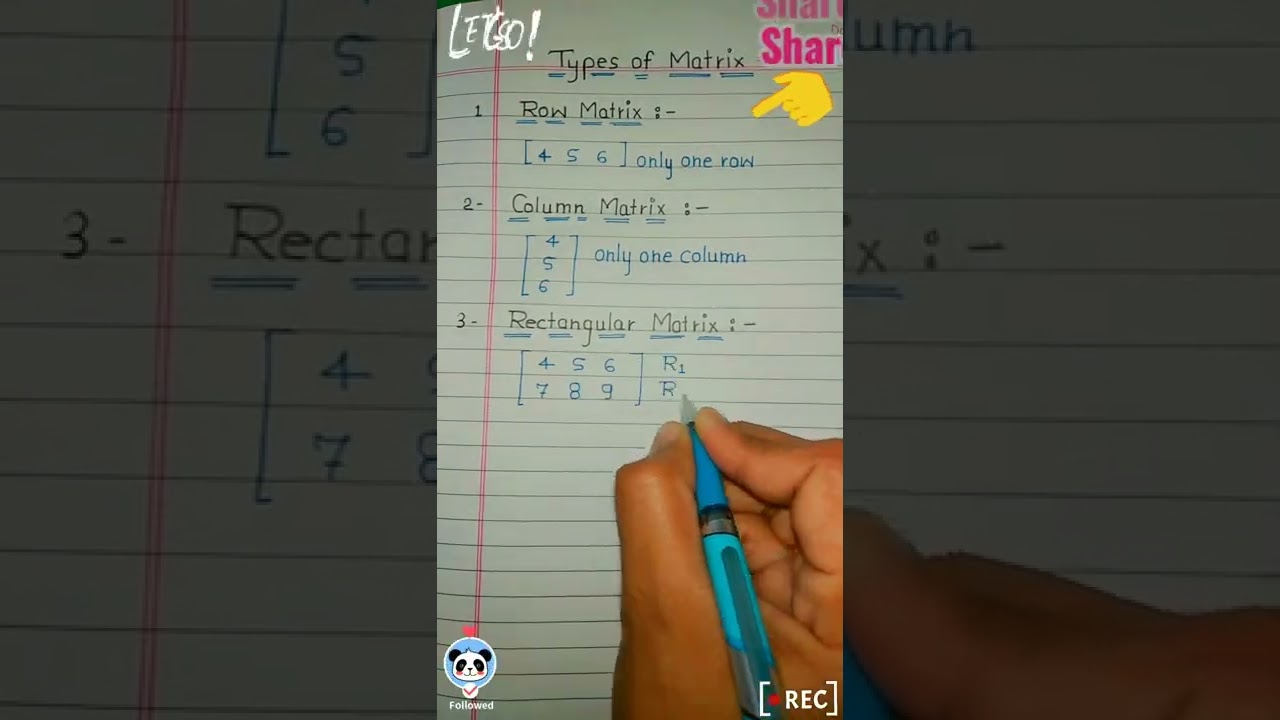 LET'S GO!
Share
Share
Types of Matrix
1 Row Matrix :-
[ 4 5 6 ] only one row
2- Column Matrix :-
4
5 only one column
6
3- Rectangular Matrix :-
4 5 6 R1
7 8 9 R
Followed
[ REC]